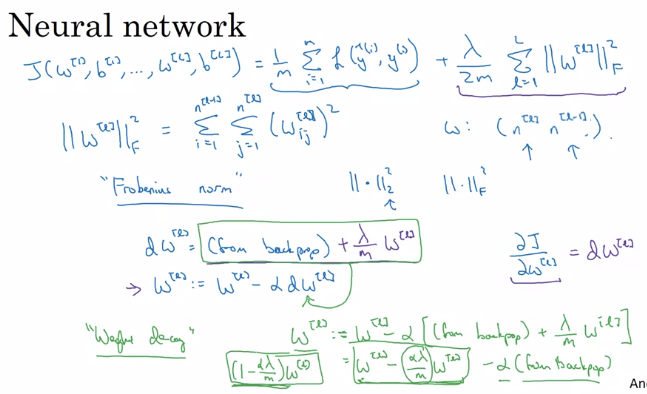 Neural network
J(w^[1], b^[1], ..., w^[L], b^[L]) = 1/m Σ_{i=1}^{m} L(ŷ^(i), y^(i)) + λ/2m Σ_{l=1}^{L} ||w^[l]||_F^2
||w^[l]||_F^2 = Σ_{i=1}^{n^[l-1]} Σ_{j=1}^{n^[l]} (w_ij^[l])^2 w: (n^[l] n^[l-1]).
"Frobenius norm" ||·||_2^2 ||·||_F^2
dw^[l] = (from backprop) + λ/m w^[l]
∂J/∂w^[l] = dw^[l]
→ w^[l] := w^[l] - α dw^[l]
"Weight decay" w^[l] := w^[l] - α [(from backprop) + λ/m w^[l]]
(1 - αλ/m) w^[l] = w^[l] - αλ/m w^[l] - α (from backprop)
An